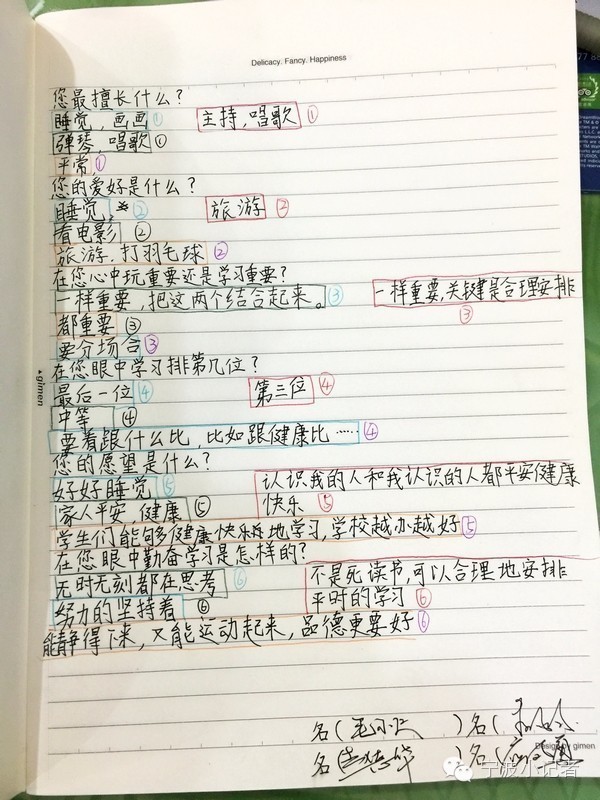 Delicacy. Fancy. Happiness
您最擅长什么?
睡觉,画画① 主持,唱歌①
弹琴,唱歌①
平常①
您的爱好是什么?
睡觉,② 旅游②
看电影②
旅游,打羽毛球②
在您心中玩重要还是学习重要?
一样重要,把这两个结合起来。③ 一样重要,关键是合理安排
③
都重要③
要分场合③
在您眼中学习排第几位?
最后一位④ 第三位④
中等④
要看跟什么比,比如跟健康比……④
您的愿望是什么?
好好睡觉⑤ 认识我的人和我认识的人都平安健康
快乐⑤
家人平安,健康⑤
学生们能够健康快乐地学习,学校越办越好⑤
在您眼中勤奋学习是怎样的?
无时无刻都在思考⑥ 不是死读书,可以合理地安排
平时的学习⑥
努力的坚持着⑥
能静得下来,又能运动起来,品德更要好⑥
gimen
名( )名(
Design by gimen
名( )名(
宁波小记者